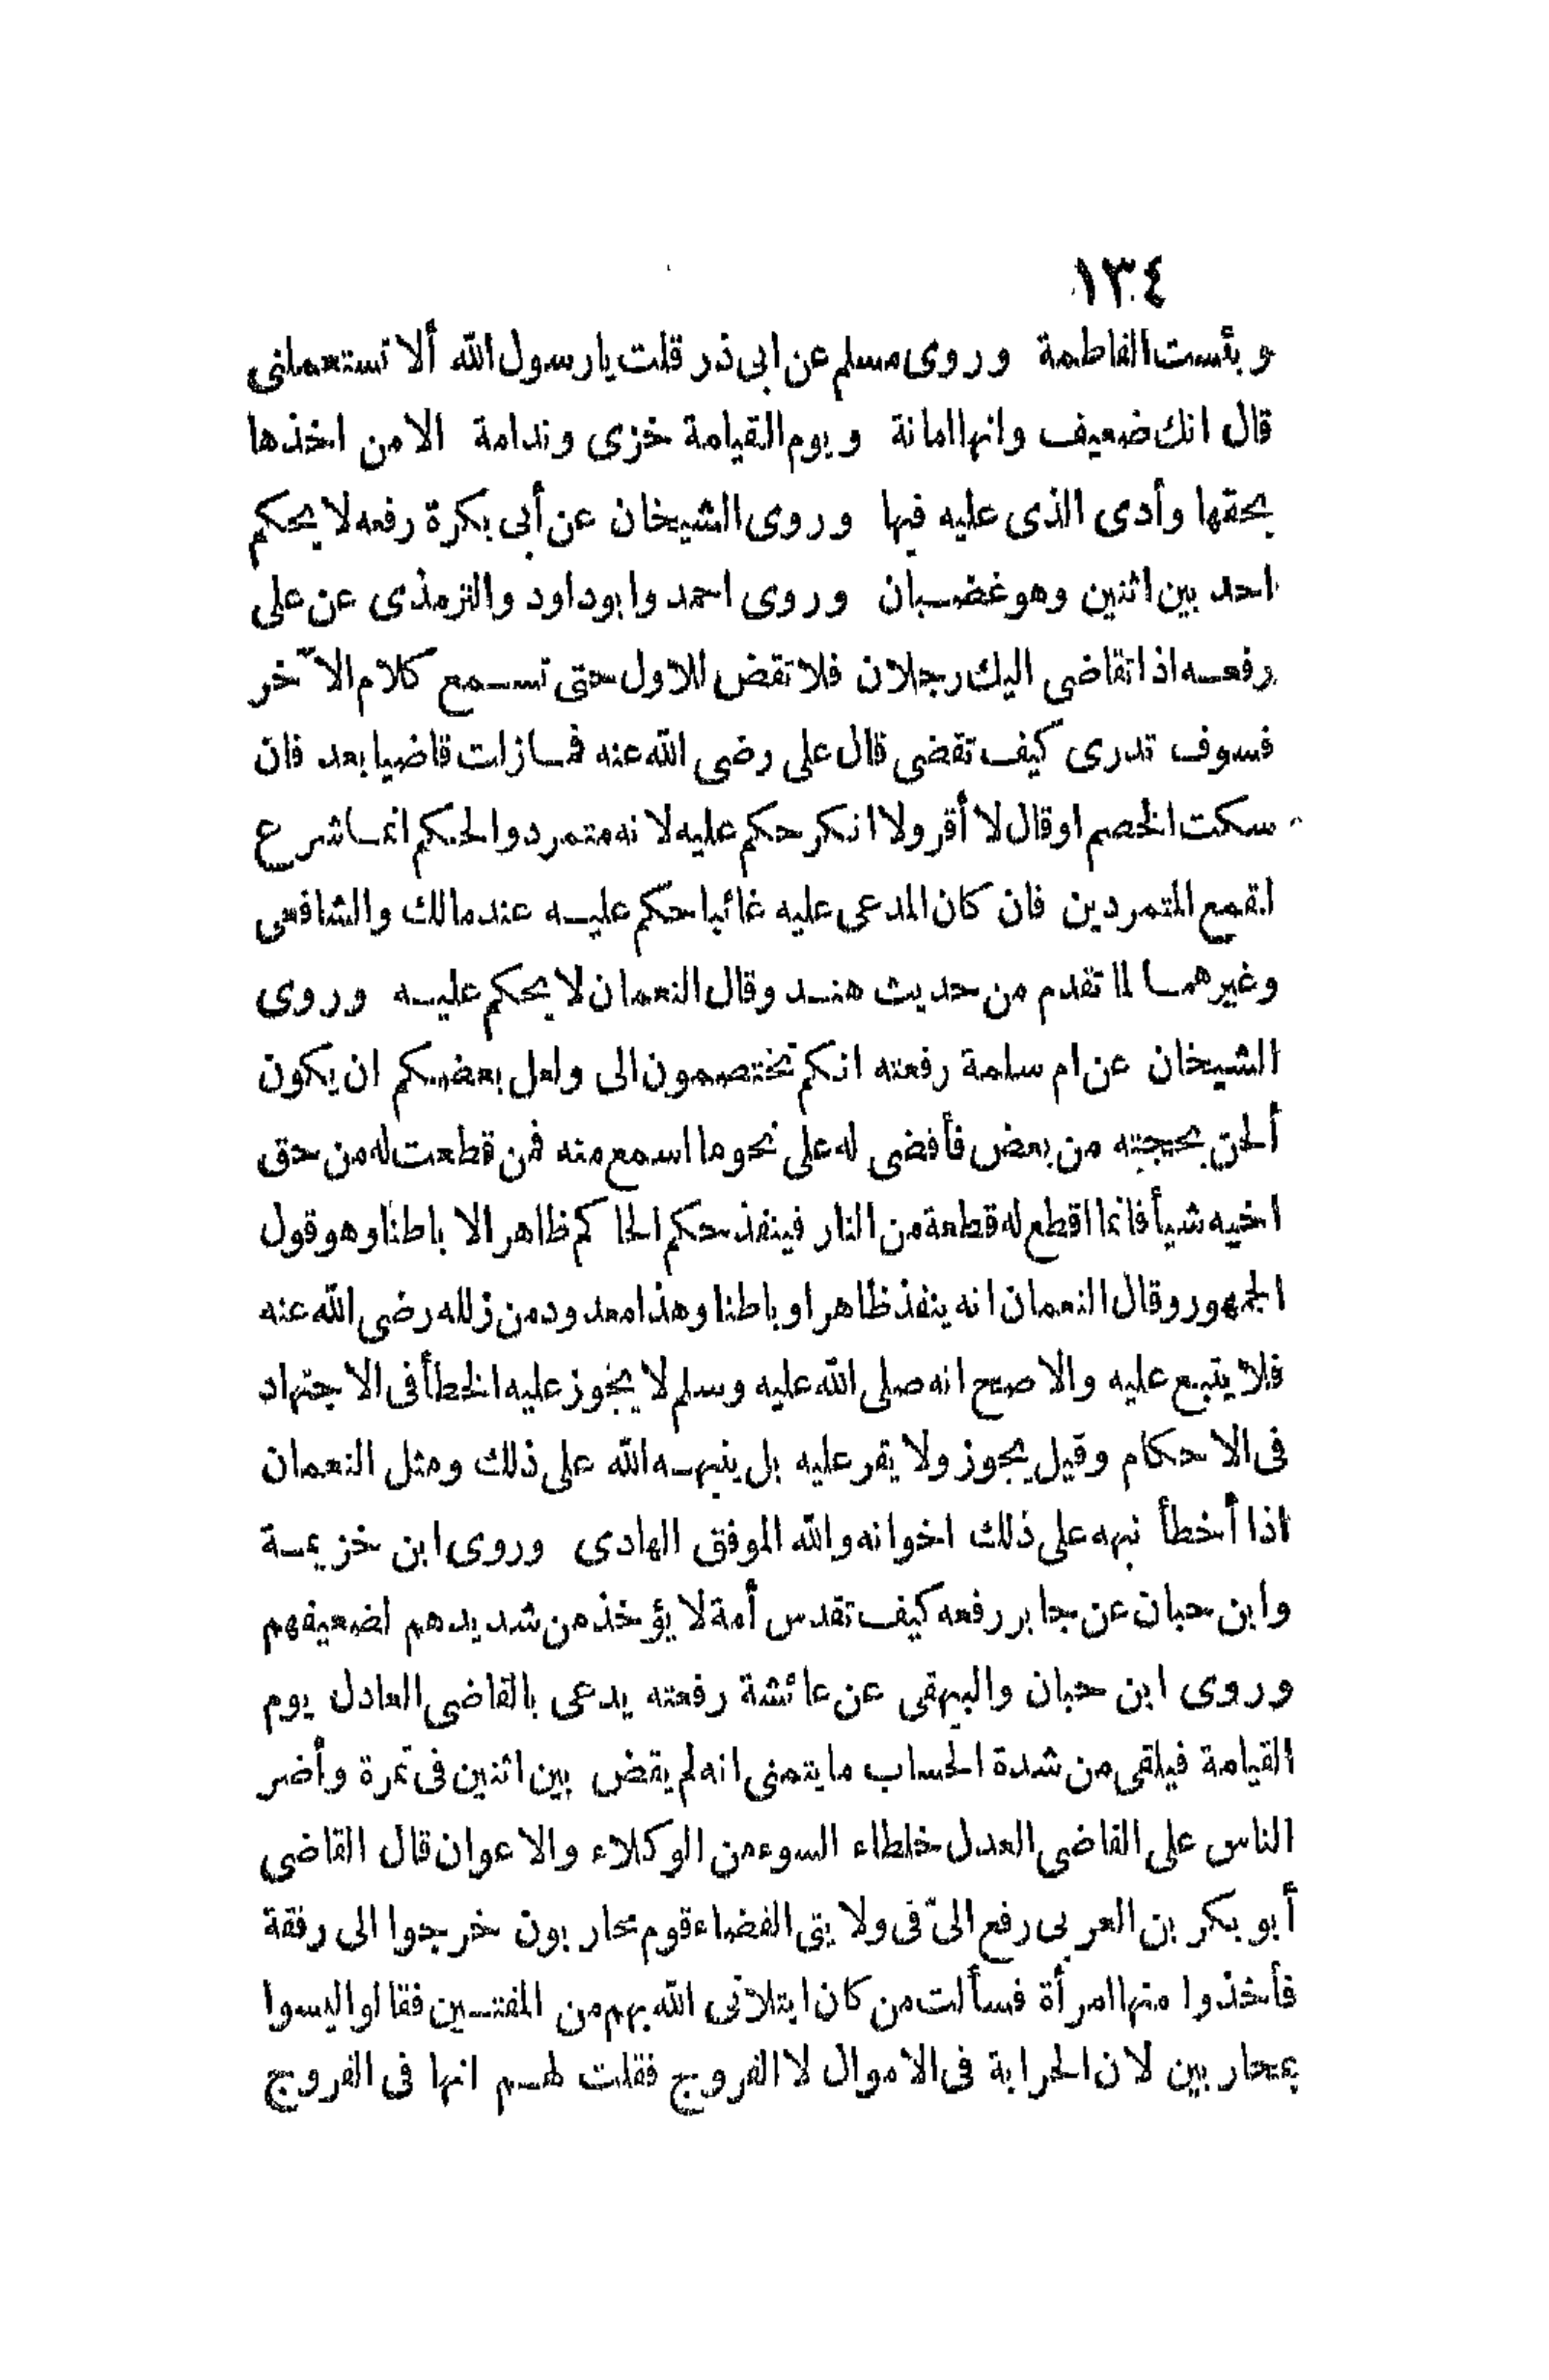 ١٣٤
وبئست الفاطمة وروى مسلم عن ابى ذر قلت يارسول الله ألا تستعملنى
قال انك ضعيف وانها امانة ويوم القيامة خزى وندامة الا من اخذها
بحقها وأدى الذى عليه فيها وروى الشيخان عن أبى بكرة رفعه لا يحكم
احد بين اثنين وهو غضبان وروى احمد وابوداود والترمذى عن على
رفعه اذا تقاضى اليك رجلان فلا تقض للاول حتى تسمع كلام الآخر
فسوف تدرى كيف تقضى قال على رضى الله عنه فمازلت قاضيا بعد فان
سكت الخصم اوقال لا أقر ولا انكر حكم عليه لانه متمرد والحكم انما شرع
لقمع المتمردين فان كان المدعى عليه غائبا حكم عليه عند مالك والشافعى
وغيرهما لما تقدم من حديث هند وقال النعمان لا يحكم عليه وروى
الشيخان عن ام سلمة رفعته انكم تختصمون الى ولعل بعضكم ان يكون
ألحن بحجته من بعض فأقضى له على نحو ما اسمع منه فمن قطعت له من حق
اخيه شيأ فانما اقطع له قطعة من النار فينفذ حكم الحاكم ظاهرا لا باطنا وهو قول
الجمهور وقال النعمان انه ينفذ ظاهرا وباطنا وهذا معدود من زلله رضى الله عنه
فلا يتبع عليه والاصح انه صلى الله عليه وسلم لا يجوز عليه الخطأ فى الاجتهاد
فى الاحكام وقيل يجوز ولا يقر عليه بل ينبهه الله على ذلك ومثل النعمان
اذا أخطأ نبهه على ذلك اخوانه والله الموفق الهادى وروى ابن خزيمة
وابن حبان عن جابر رفعه كيف تقدس أمة لا يؤخذ من شديدهم لضعيفهم
وروى ابن حبان والبيهقى عن عائشة رفعته يدعى بالقاضى العادل يوم
القيامة فيلقى من شدة الحساب ما يتمنى انه لم يقض بين اثنين فى تمرة وأضر
الناس على القاضى العدل خلطاء السوء من الوكلاء والاعوان قال القاضى
أبو بكر بن العربى رفع الىّ فى ولايتى القضاء قوم محاربون خرجوا الى رفقة
فأخذوا منها امرأة فسألت من كان ابتلانى الله بهم من المفتين فقالوا ليسوا
بمحاربين لان الحرابة فى الاموال لا الفروج فقلت لهم انها فى الفروج